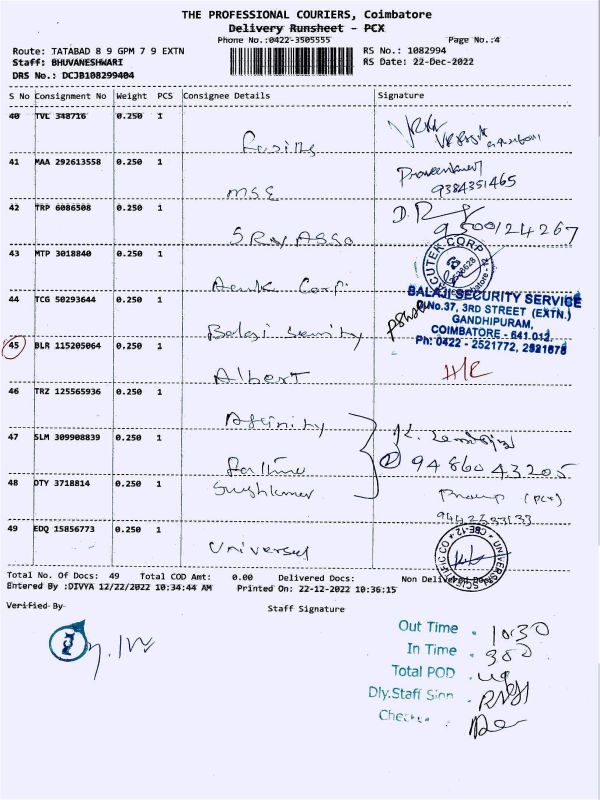 THE PROFESSIONAL COURIERS, Coimbatore
Delivery Runsheet - PCX
Phone No.:0422-3505555 Page No.:4
Route: TATABAD 8 9 GPM 7 9 EXTN RS No.: 1082994
Staff: BHUVANESHWARI RS Date: 22-Dec-2022
DRS No.: DCJB108299404
S No Consignment No Weight PCS Consignee Details Signature
40 TVL 348716 0.250 1
41 MAA 292613558 0.250 1
Praveenkumar
9384351465
MSE
42 TRP 6086508 0.250 1
D.
9500124267
SRN ASSO
43 MTP 3018840 0.250 1
Corp.
44 TCG 50293644 0.250 1
BALAJI SECURITY SERVICE
No.37, 3RD STREET (EXTN.)
GANDHIPURAM,
COIMBATORE - 641 012.
Ph: 0422 - 2521772, 2521678
Balaji Security
45 BLR 115205064 0.250 1
H/R
Albert
46 TRZ 125565936 0.250 1
Affinity
47 SLM 309908839 0.250 1
9486043205
48 DTY 3718814 0.250 1
(PCX)
49 EDQ 15856773 0.250 1
Universal
Total No. Of Docs: 49 Total COD Amt: 0.00 Delivered Docs: Non Delivered Docs:
Entered By :DIVYA 12/22/2022 10:34:44 AM Printed On: 22-12-2022 10:36:15
Verified By Staff Signature
Out Time 10:30
In Time 300
Total POD
Dly.Staff Sign